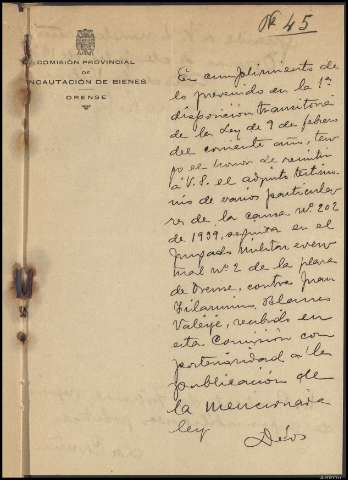 Nº 45
COMISIÓN PROVINCIAL
DE
INCAUTACIÓN DE BIENES
ORENSE
En cumplimiento de
lo prevenido en la 1ª
disposición transitoria
de la Ley de 9 de febrero
del corriente año, ten-
go el honor de remitir
á V.S. el adjunto testimo-
nio de varios particula-
res de la causa nº 202
de 1939, seguida en el
Juzgado Militar even-
tual nº 2 de la plaza
de Orense, contra Juan
Blanco
, recibido en
esta Comisión con
posterioridad a la
publicación de
la mencionada
ley
Dios